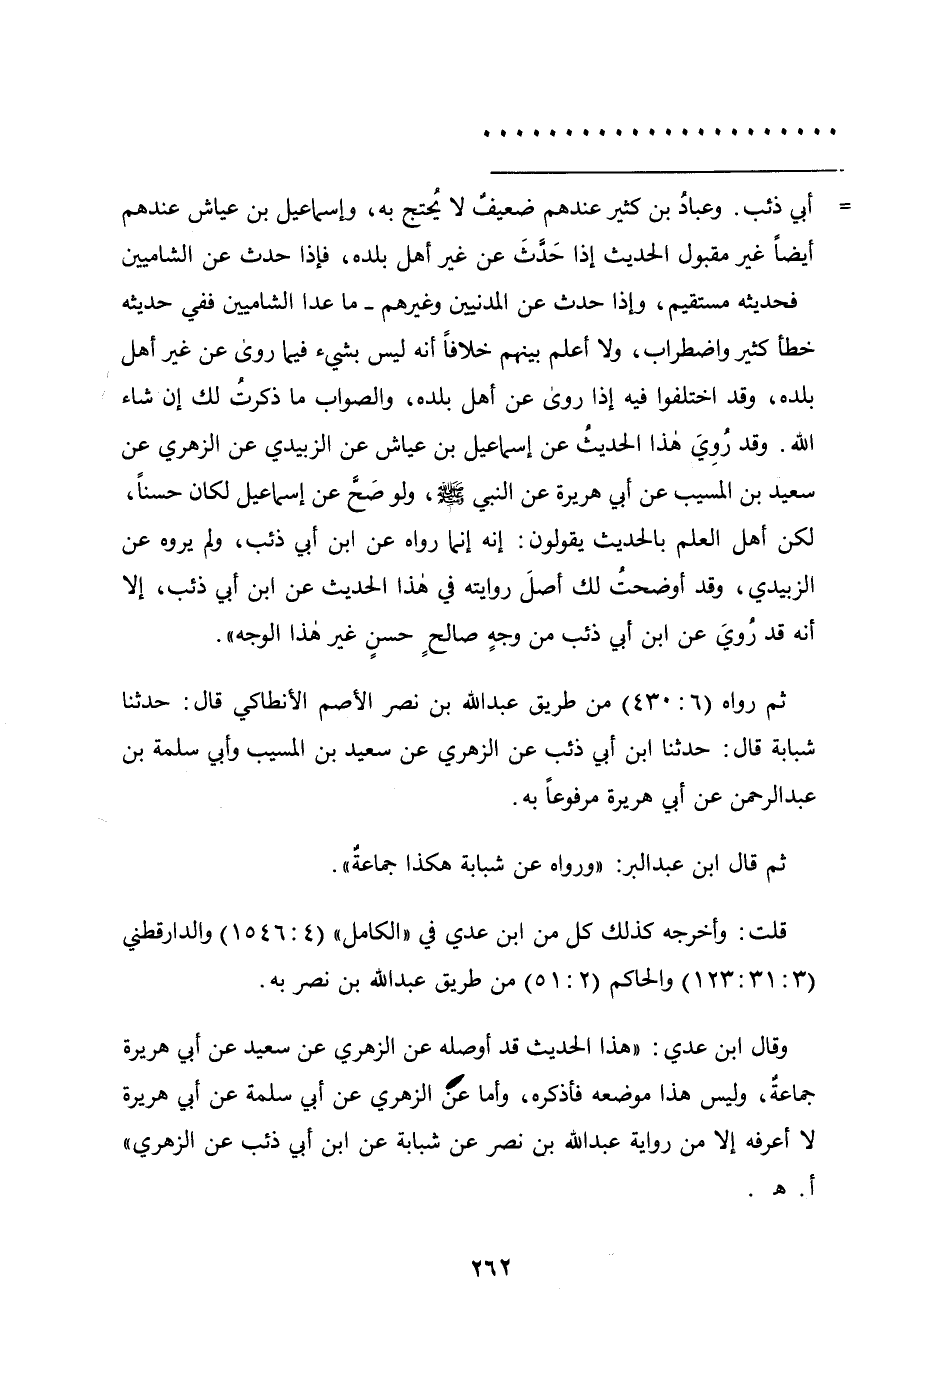 = أبي ذئب. وعبادُ بن كثير عندهم ضعيفٌ لا يُحتج به، وإسماعيل بن عياش عندهم
أيضاً غير مقبول الحديث إذا حَدَّثَ عن غير أهل بلده، فإذا حدث عن الشاميين
فحديثه مستقيم، وإذا حدث عن المدنيين وغيرهم ـ ما عدا الشاميين ففي حديثه
خطأ كثير واضطراب، ولا أعلم بينهم خلافاً أنه ليس بشيء فيما روىٰ عن غير أهل
بلده، وقد اختلفوا فيه إذا روىٰ عن أهل بلده، والصواب ما ذكرتُ لك إن شاء
الله. وقد رُوِيَ هٰذا الحديثُ عن إسماعيل بن عياش عن الزبيدي عن الزهري عن
سعيد بن المسيب عن أبي هريرة عن النبي ﷺ، ولو صَحَّ عن إسماعيل لكان حسناً،
لكن أهل العلم بالحديث يقولون: إنه إنما رواه عن ابن أبي ذئب، ولم يروه عن
الزبيدي، وقد أوضحتُ لك أصلَ روايته في هٰذا الحديث عن ابن أبي ذئب، إلا
أنه قد رُويَ عن ابن أبي ذئب من وجهٍ صالحٍ حسنٍ غير هٰذا الوجه».
ثم رواه (٦: ٤٣٠) من طريق عبدالله بن نصر الأصم الأنطاكي قال: حدثنا
شبابة قال: حدثنا ابن أبي ذئب عن الزهري عن سعيد بن المسيب وأبي سلمة بن
عبدالرحمن عن أبي هريرة مرفوعاً به.
ثم قال ابن عبدالبر: «ورواه عن شبابة هكذا جماعةٌ».
قلت: وأخرجه كذلك كل من ابن عدي في «الكامل» (٤: ١٥٤٦) والدارقطني
(٣: ٣١: ١٢٣) والحاكم (٢: ٥١) من طريق عبدالله بن نصر به.
وقال ابن عدي: «هذا الحديث قد أوصله عن الزهري عن سعيد عن أبي هريرة
جماعةٌ، وليس هذا موضعه فأذكره، وأما عن الزهري عن أبي سلمة عن أبي هريرة
لا أعرفه إلا من رواية عبدالله بن نصر عن شبابة عن ابن أبي ذئب عن الزهري»
أ. هـ .
٢٦٢